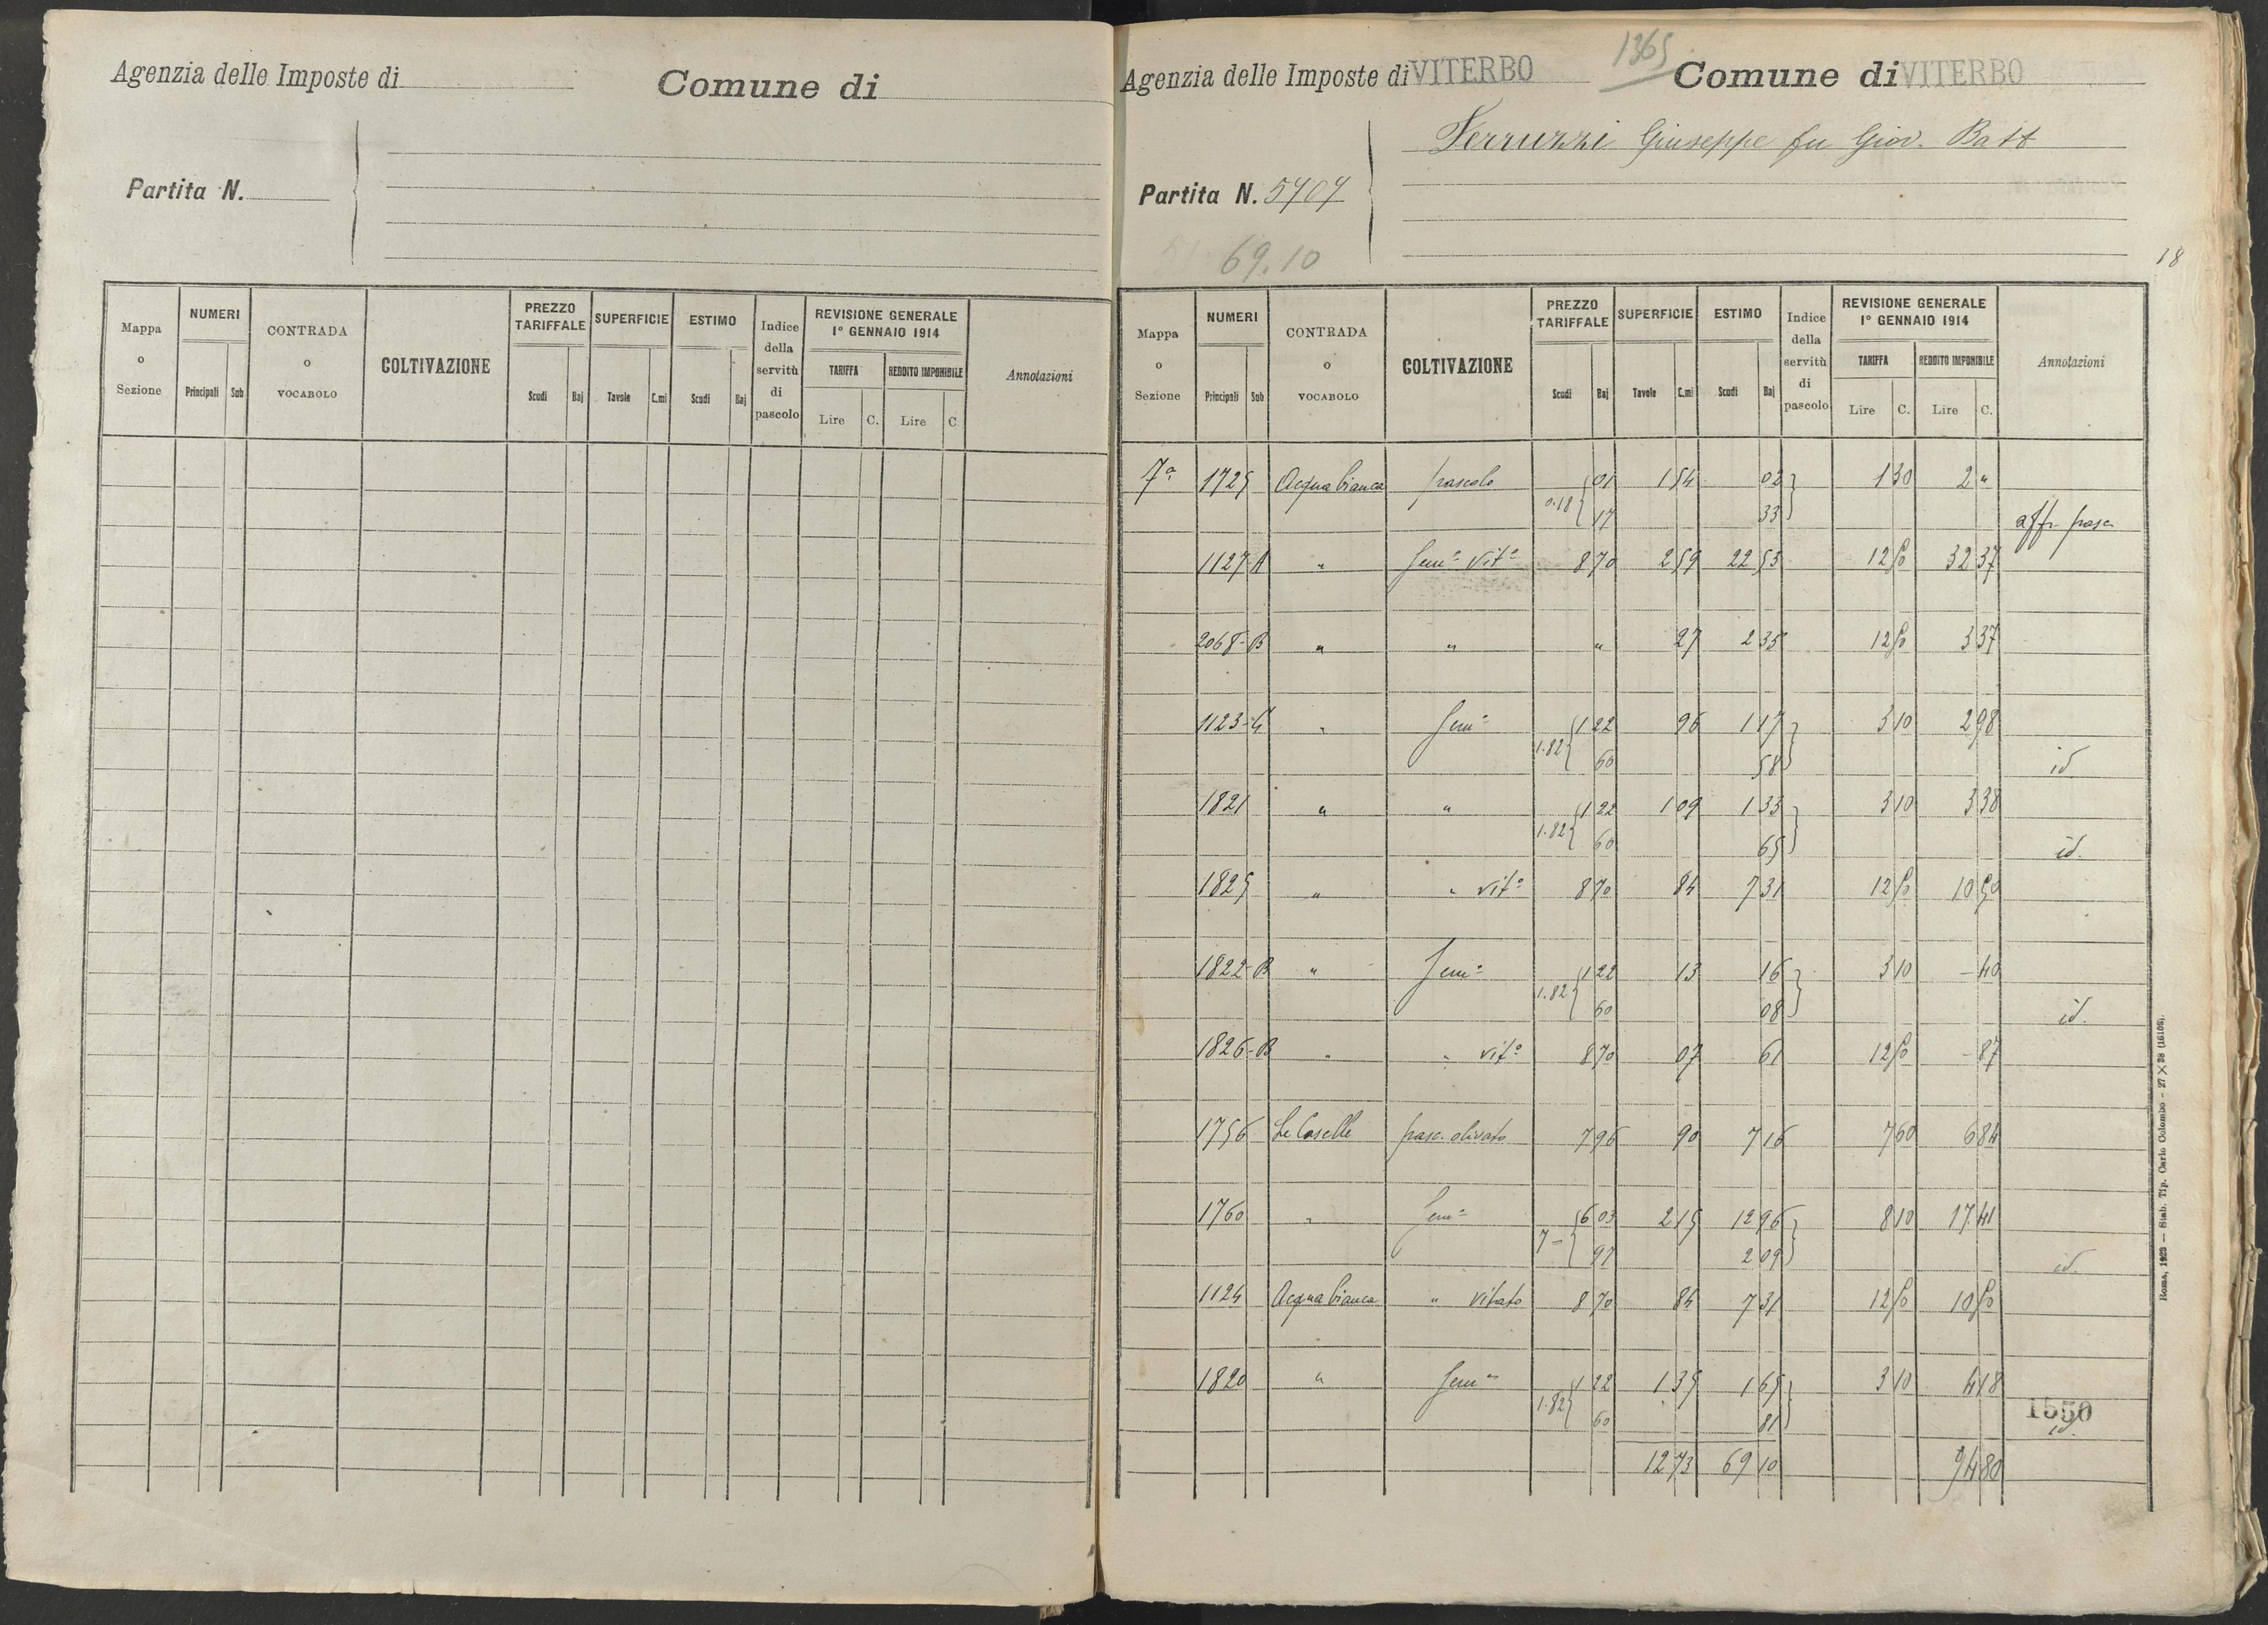 Agenzia delle Imposte di
Comune di
Partita N.
Mappa o Sezione | NUMERI Principali Sub | CONTRADA o VOCABOLO | COLTIVAZIONE | PREZZO TARIFFALE Scudi Baj | SUPERFICIE Tavole C.mi | ESTIMO Scudi Baj | Indice della servitù di pascolo | REVISIONE GENERALE 1° GENNAIO 1914 TARIFFA Lire C. REDDITO IMPONIBILE Lire C | Annotazioni
1365
Agenzia delle Imposte di VITERBO
Comune di VITERBO
Ferruzzi Giuseppe fu Giov. Batt
Partita N. 5707
69.10
18
Mappa o Sezione | NUMERI Principali Sub | CONTRADA o VOCABOLO | COLTIVAZIONE | PREZZO TARIFFALE Scudi Baj | SUPERFICIE Tavole C.mi | ESTIMO Scudi Baj | Indice della servitù di pascolo | REVISIONE GENERALE 1° GENNAIO 1914 TARIFFA Lire C. REDDITO IMPONIBILE Lire C. | Annotazioni
7a 1725 Acqua bianca pascolo 01 1 54 02 1 30 2 "
0.18 17 33 aff. pasc
1127-A " Semo Vito 8 70 2 59 22 53 12 50 32 37
2068-B " " " 27 2 35 12 50 3 37
1123-G " Semo 1 22 96 1 17 3 10 2 98
1.82 60 58 id
1821 " " 1 22 1 09 1 33 3 10 3 38
1.82 60 65 id.
1825 " " vito 8 70 84 7 31 12 50 10 50
1822-B " Semo 1 22 13 16 3 10 - 40
1.82 60 08 id.
1826-B " " vito 8 70 07 61 12 50 - 87
1756 Le Caselle pasc. olivato 7 96 90 7 16 7 60 6 84
1760 " Semo 6 03 2 15 12 96 8 10 17 41
7 - 97 2 09 id.
1124 Acqua bianca " vitato 8 70 84 7 31 12 50 10 50
1820 " Semo 1 22 1 35 1 65 3 10 4 18
1.82 60 81 id.
1550
12 73 69 10 94 80
Roma, 1923 — Stab. Tip. Carlo Colombo - 27 X 38 (16106).